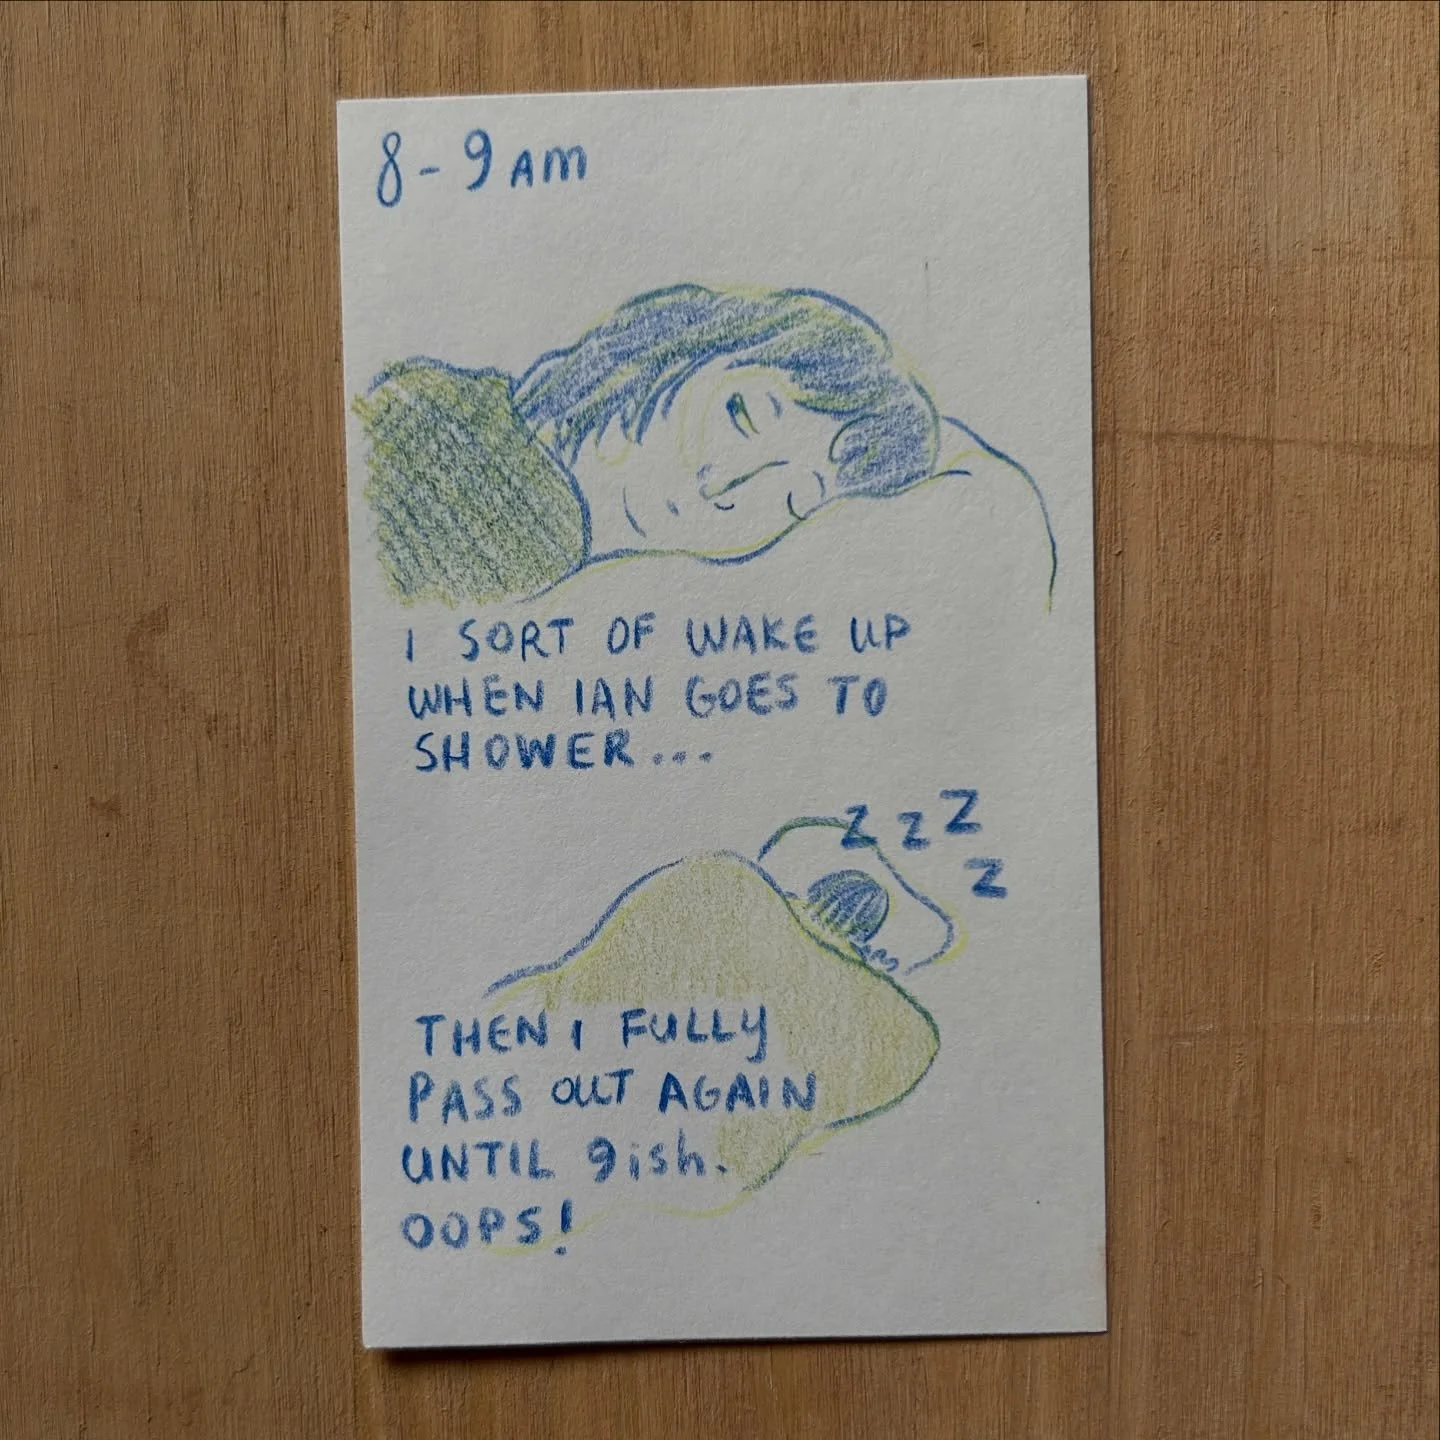 8-9AM
I SORT OF WAKE UP
WHEN IAN GOES TO
SHOWER...
Z Z Z
Z
THEN I FULLY
PASS OUT AGAIN
UNTIL 9ish.
OOPS!